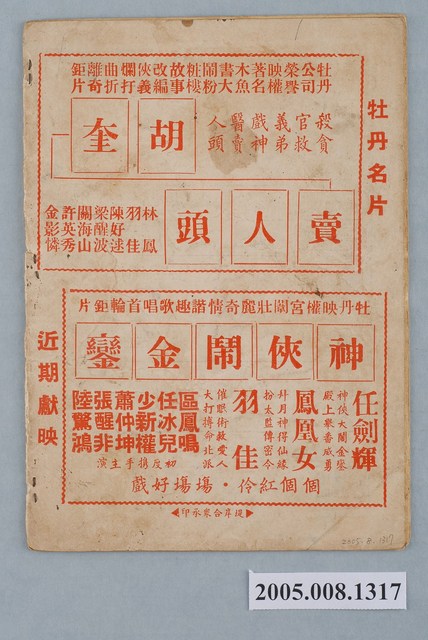 牡丹公司榮譽映權著名木魚書大鬧粉粧樓故事改編俠義爛打曲折離奇鉅片
牡丹名片
殺貪官救義弟戲神醫賣人頭
胡奎
賣人頭
林鳳
羽佳
陳好逑
梁醒波
關海山
許英秀
金影憐
牡丹映權宮闈壯麗奇情諧趣歌唱首輪鉅片
神俠鬧金鑾
任劍輝
神俠大鬧金鑾
殿上眾番威勇
鳳凰女
拜月神得仙緣
扮太監傳密令
羽佳
催眠術救愛人
大打搏命北派
區鳳鳴
任冰兒
少新權
蕭仲坤
張醒非
陸驚鴻
演主手攜反初
個個紅伶・場場好戲
近期獻映
◀提岸合眾承印▶
2005.8.1317
2005.008.1317